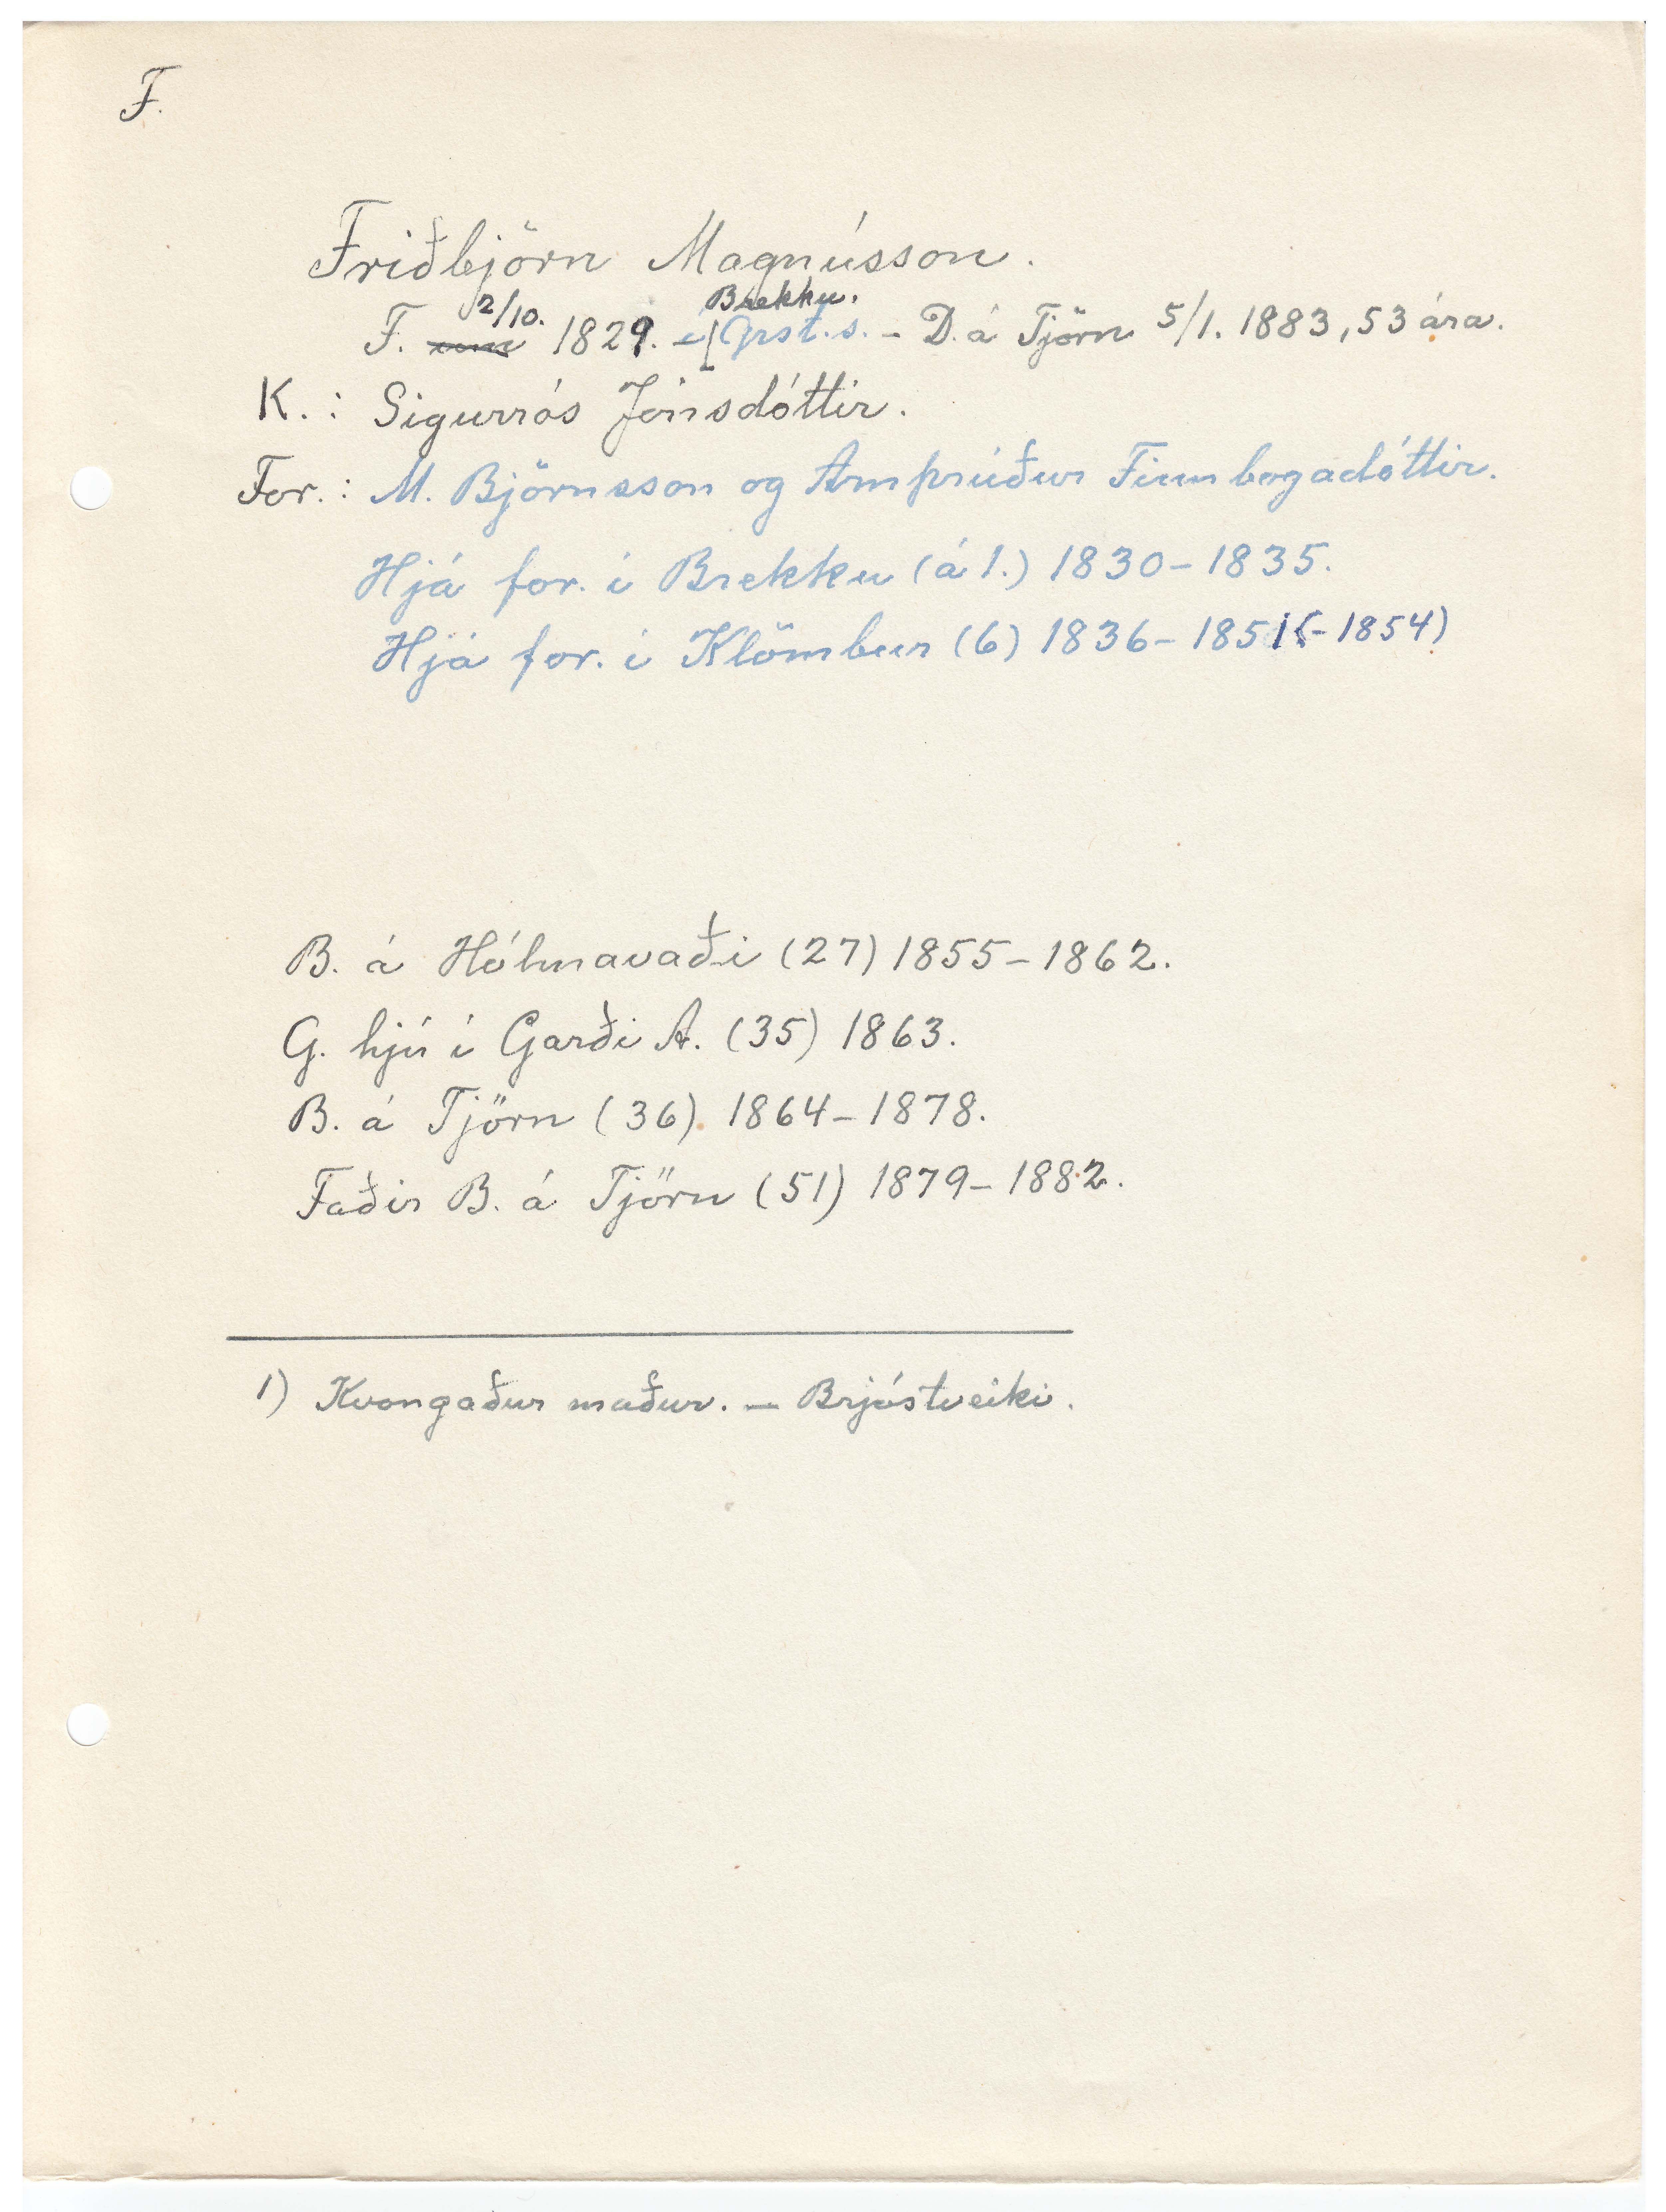 F.
Friðbjörn Magnússon.
F. 2/10. 1829. í Brekku. Grst.s. – D. á Tjörn 5/1. 1883, 53 ára.
K.: Sigurrós Jónsdóttir.
For.: M. Björnsson og Arnþrúður Finnbogadóttir.
Hjá for. í Brekku (á 1.) 1830–1835.
Hjá for. í Klömbur (6) 1836–1851 (-1854)
B. á Hólmavaði (27) 1855–1862.
G. hjú í Garði A. (35) 1863.
B. á Tjörn (36). 1864–1878.
Faðir B. á Tjörn (51) 1879–1882.
1) Kvongaður maður. – Brjóstveiki.